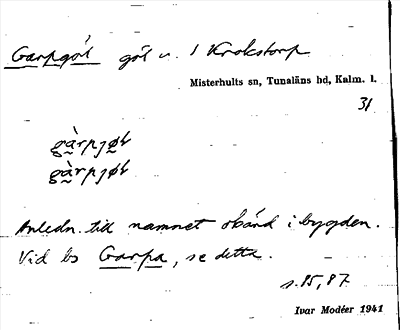 Garpgöl göl n. 1 Krokstorp
Misterhults sn, Tunaläns hd, Kalm. l.
31
gàrpjøl
gàrpjøl
Anledn. till namnet okänd i bygden.
Vid bs Garpa, se detta.
s. 85, 87
Ivar Modéer 1941